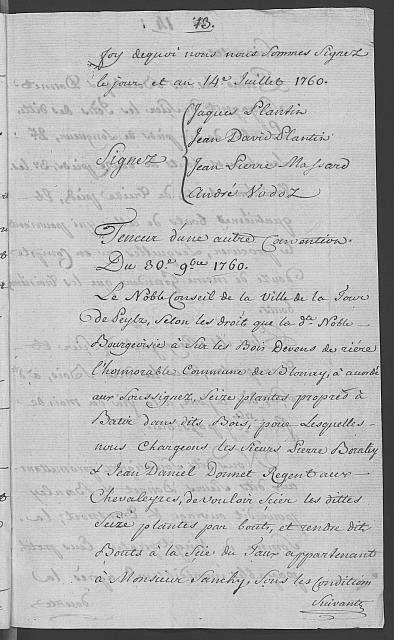 13.
foy dequoi nous nous Sommes Signez
le jour et an 14e Juillet 1760.
Jaques Plantin
Jean David Plantin
Signez
Jean Pierre Massard
André Vodoz
Teneur d'une autre Convention.
Du 30e 9bre 1760.
Le Noble Conseil de la Ville de la Tour
de Peylz, selon les droit que la de Noble
Bourgeoisie à Sur les Bois Devens de rière
l'honnorable Commune de St Llonay, à acordé
aux Soussignez, Seize plantes propres à
Batir dans dits Bois, pour Lesquelles
nous Chargeons les Sieurs Pierre
& Jean Daniel Donnet Regent aux
Chevaleyres, de vouloir Scier les dittes
Seize plantes par bouts, et rendre dit
Bouts à la Scie du Faux appartenant
à Monsieur Sanchy, Sous les Condition
Suivante